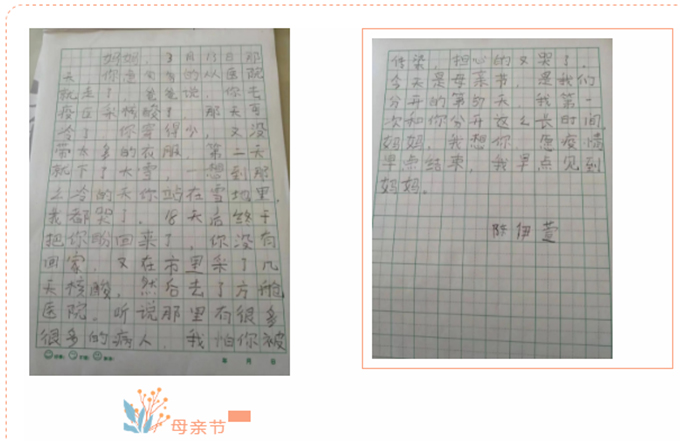 妈妈，3月13日那
天 你急匆匆的从医院
就走了，爸爸说，你去
疫区采核酸了，那天可
冷了 你穿得少，又没
带太多的衣服，第二天
就下了大雪，一想到那
么冷的天你站在雪地里，
我都哭了，18天后终于
把你盼回来了，你没有
回家，又在市里采了几
天核酸，然后去了方舱
医院，听说那里有很多
很多的病人，我怕你被
年 月 日
传染，担心的又哭了，
今天是母亲节，是我们
分开的第57天，我第一
次和你分开这么长时间，
妈妈，我想你，愿疫情
早点结束，我早点见到
妈妈。
陈伊萱
母亲节